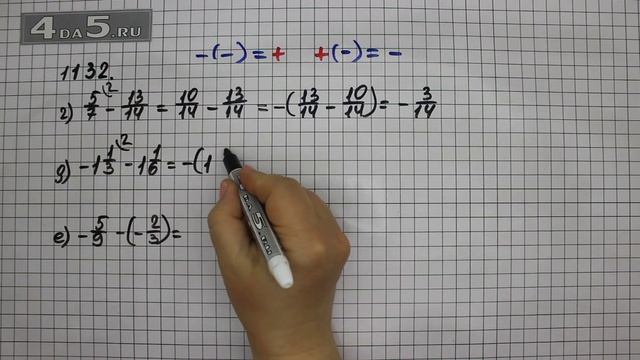 4DA5.RU
-(-) = + +(-) = -
1132.
г) 5/7 \2 - 13/14 = 10/14 - 13/14 = -(13/14 - 10/14) = - 3/14
д) -1 1/3 \2 - 1 1/6 = -(1
е) - 5/9 - (- 2/3) =
4DA5.RU